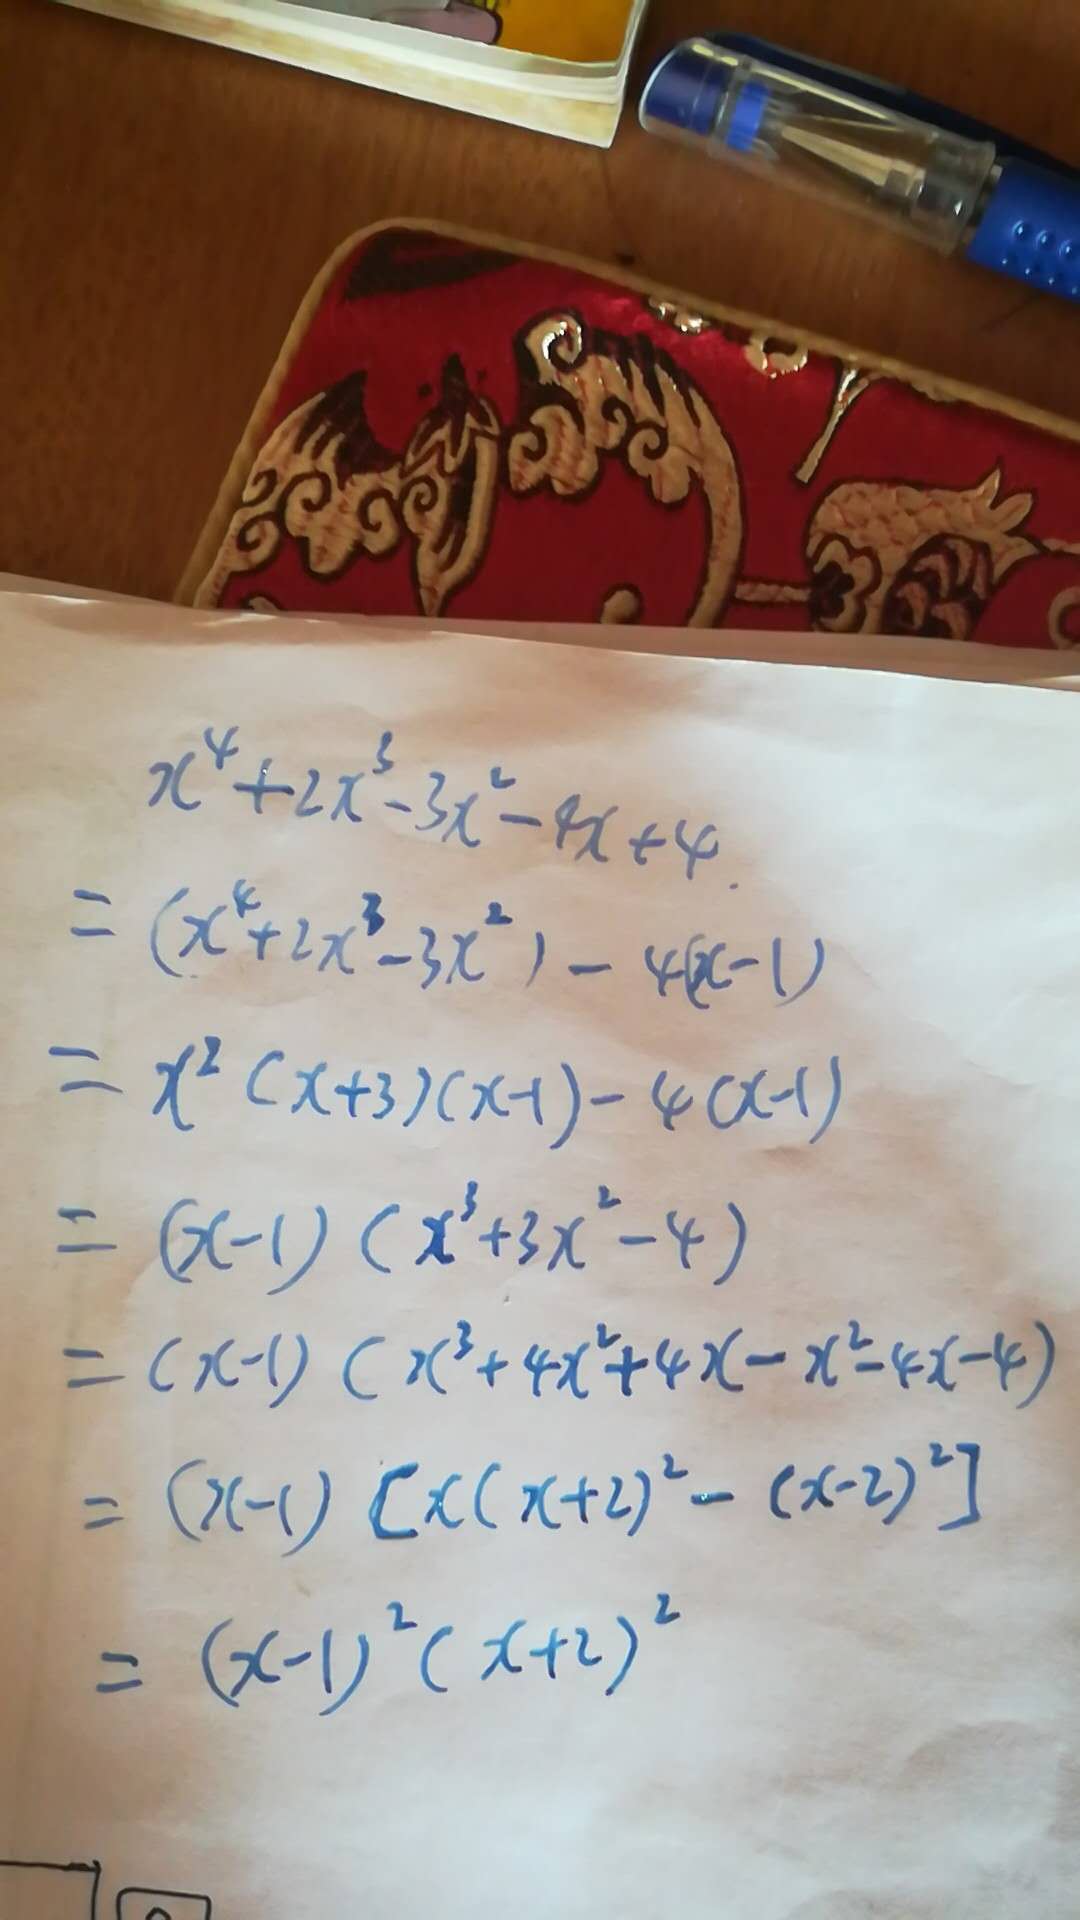 x⁴+2x³-3x²-4x+4
=(x⁴+2x³-3x²)-4(x-1)
=x²(x+3)(x-1)-4(x-1)
=(x-1)(x³+3x²-4)
=(x-1)(x³+4x²+4x-x²-4x-4)
=(x-1)[x(x+2)²-(x-2)²]
=(x-1)²(x+2)²